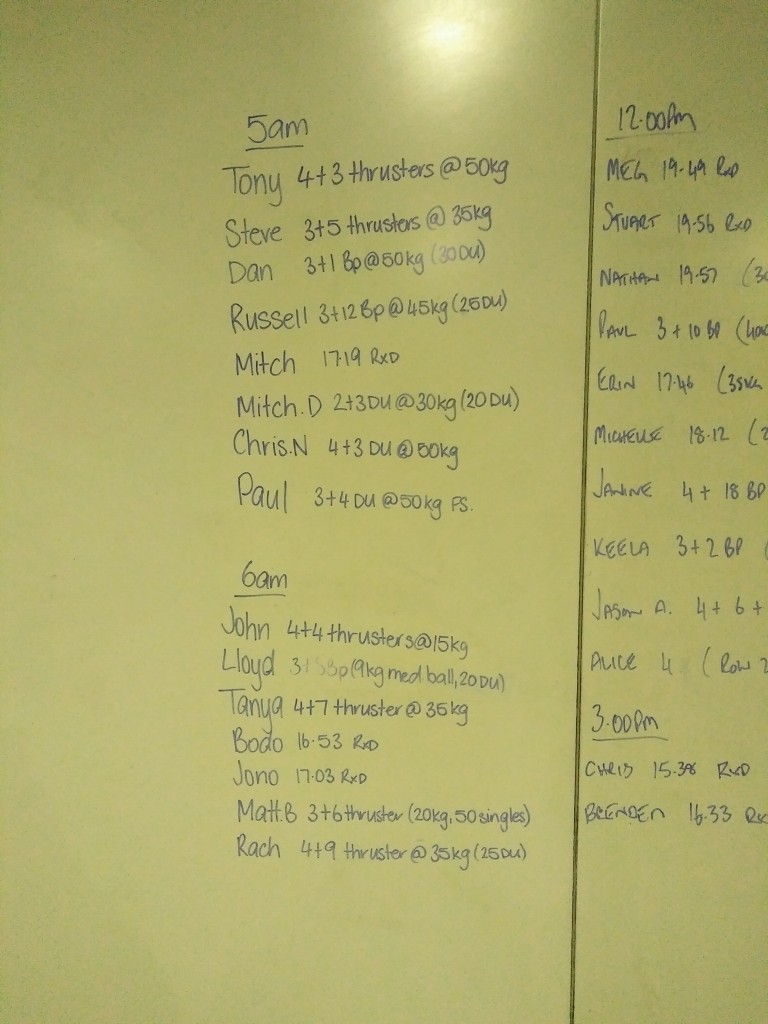 5am
Tony 4+3 thrusters @ 50kg
Steve 3+5 thrusters @ 35kg
Dan 3+1 Bp @ 50kg (30DU)
Russell 3+12 Bp @ 45kg (25DU)
Mitch 17.19 RxD
Mitch.D 2+3DU @ 30kg (20 DU)
Chris.N 4+3 DU @ 50kg
Paul 3+4 DU @ 50kg FS.
6am
John 4+4 thrusters @ 15kg
Lloyd Bp (9kg med ball, 20 DU)
Tanya 4+7 thruster @ 35kg
Bodo 16.53 RxD
Jono 17.03 RxD
Matt.B 3+6 thruster (20kg, 50 singles)
Rach 4+9 thruster @ 35kg (25DU)
12.00pm
MEG 19.49 RxD
STUART 19.56 RxD
NATHAN 19.57 (30
PAUL 3 + 10 BP (40K
ERIN 17.46 (35KG
MICHELLE 18.12 (2
JANINE 4 + 18 BP
KEELA 3+2 BP (
JASON A. 4 + 6 +
ALICE 4 (ROW 2
3.00pm
CHRIS 15.38 RXD
BRENDEN 16.33 RX